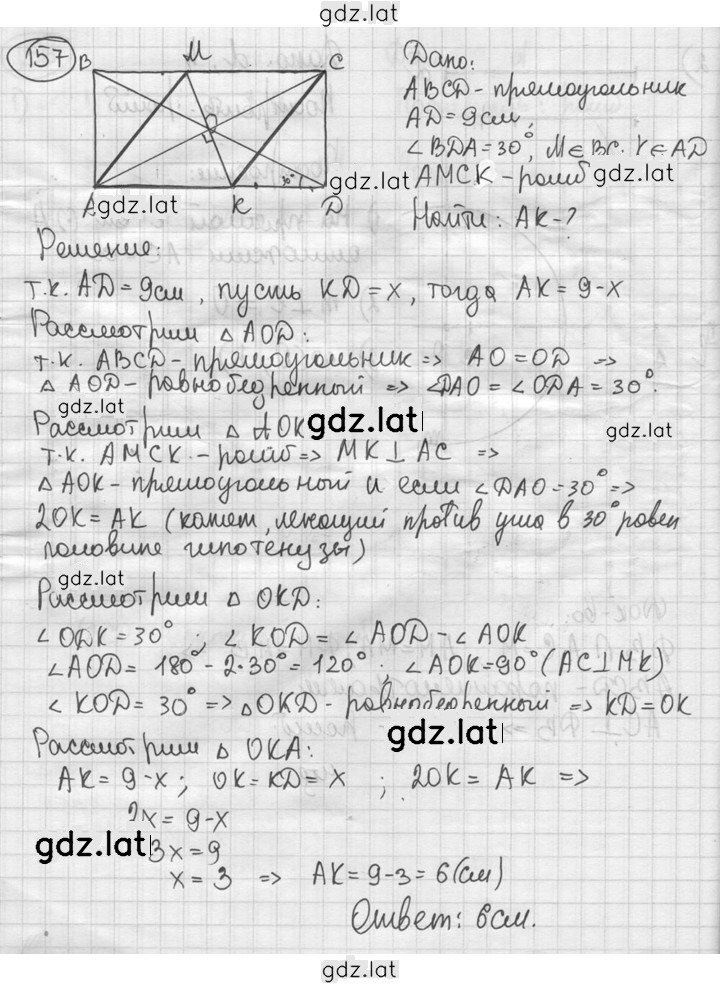 gdz.lat
157
B M C
O
30°
A K D
gdz.lat
gdz.lat
Дано:
ABCD - прямоугольник
AD = 9 см,
∠BDA = 30°, M ∈ BC. K ∈ AD
AMCK - ромб gdz.lat
Найти: AK - ?
Решение:
т.к. AD = 9см, пусть KD = x, тогда AK = 9 - x
Рассмотрим △ AOD:
т.к. ABCD - прямоугольник => AO = OD =>
△ AOD - равнобедренный => ∠DAO = ∠ODA = 30°.
gdz.lat
gdz.lat
gdz.lat
Рассмотрим △ AOK
т.к. AMCK - ромб => MK ⊥ AC =>
△ AOK - прямоугольный и если ∠DAO = 30° =>
2OK = AK (катет, лежащий против угла в 30° равен
половине гипотенузы)
gdz.lat
Рассмотрим △ OKD:
∠ODK = 30°; ∠KOD = ∠AOD - ∠AOK
∠AOD = 180° - 2·30° = 120°; ∠AOK = 90° (AC ⊥ MK)
∠KOD = 30° => △OKD - равнобедренный => KD = OK
gdz.lat
Рассмотрим △ OKA:
AK = 9 - x; OK = KD = x; 2OK = AK =>
2x = 9 - x
gdz.lat 3x = 9
x = 3 => AK = 9 - 3 = 6 (см)
Ответ: 6 см.
gdz.lat